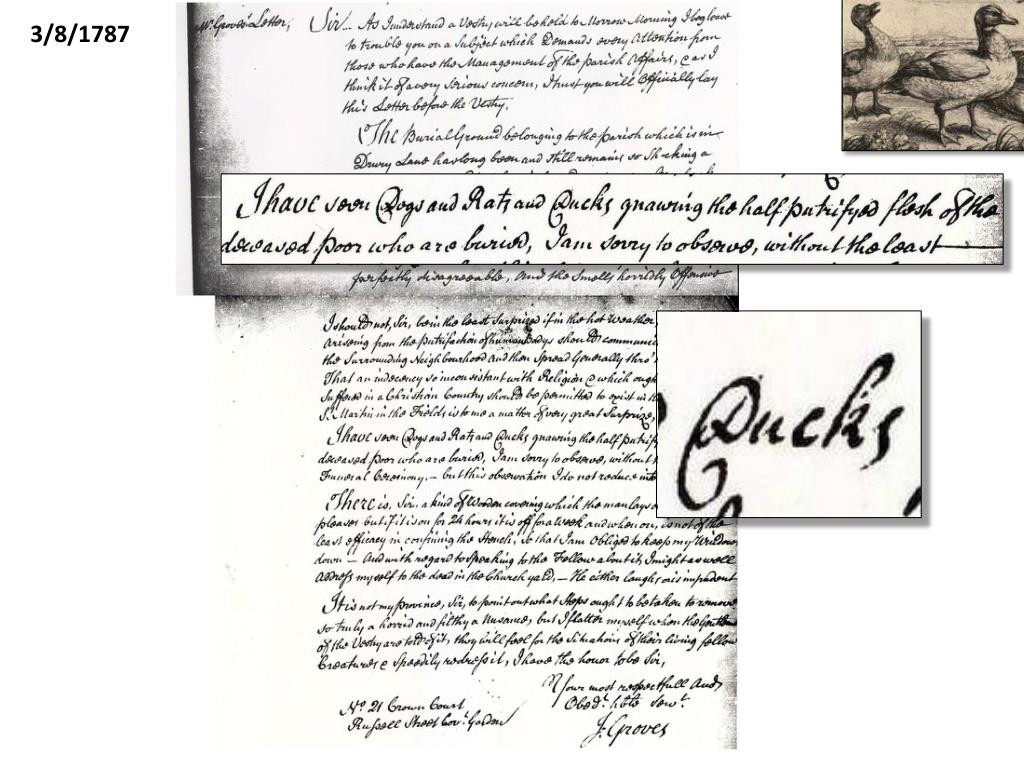 3/8/1787
Mr. Groves's Letter,
Sir... As I understand a Vestry will be held to Morrow Morning I beg leave
to trouble you on a Subject which Demands every Attention from
those who have the Management of the Parish Affairs, & as I
think it of a very serious concern, I trust you will Officially lay
this Letter before the Vestry.
The Burial Ground belonging to the Parish which is in
Drury Lane has long been and still remains so Shocking a
I have seen Dogs and Rats and Ducks gnawing the half putrifyed flesh of the
deceased poor who are buried, I am sorry to observe, without the least
perfectly disagreeable, and the Smells horridly Offensive
I should not, Sir, be in the least Surprized if in the hot Weather,
arising from the putrifaction of human Bodys should communi
the Surrounding Neighbourhood and then Spread Generally thro'
That an indecency so inconsistant with Religion & which ough
Suffered in a Christian Country should be permitted to exist in th
St. Martin in the Fields is to me a matter of very great Surprize,
I have seen Dogs and Rats and Ducks gnawing the half putrif
deceased poor who are buried, I am sorry to observe, without t
Funeral Ceremony. — but this observation I do not reduce int
Ducks
There is, Sir, a kind of Wooden covering which the man lays o
pleases but if it is on for 24 hours it is off for a Week and when on, is not of the
least efficacy in confining the Stench, so that I am Obliged to keep my Windows
down — And with regard to Speaking to the Fellow about it, I might as well
address myself to the dead in the Church yard, — He either laughs or is impudent
It is not my province, Sir, to point out what Steps ought to be taken to remove
so truly a horrid and filthy a Nusance, but I flatter myself when the Gentlem
of the Vestry are told of it, they will feel for the Situations of their living fellow
Creatures & Speedily redress it, I have the honor to be Sir,
Your most respectfull and
Obedt. hble servt.
J. Groves
No. 21 Crown Court
Russell Street Covt. Garden